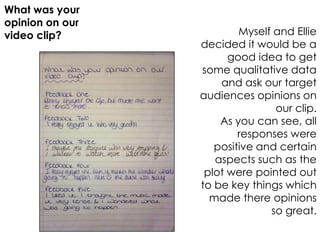 What was your
opinion on our
video clip?
Myself and Ellie
decided it would be a
good idea to get
some qualitative data
and ask our target
audiences opinions on
our clip.
As you can see, all
responses were
positive and certain
aspects such as the
plot were pointed out
to be key things which
made there opinions
so great.
What was your opinion on our
video clip?
Feedback One
enjoyed the clip, but made me want
to see more.
Feedback Two
I really enjoyed it. Was very good!!
Feedback Three
I the was very tempting &
I wanted to watch more
Feedback Four
I really enjoyed the clip, it makes me wonder what's
going to happen next & the was scary
Feedback Five
I liked it. I thought the music made
it very tense & I wondered what
was going to happen.